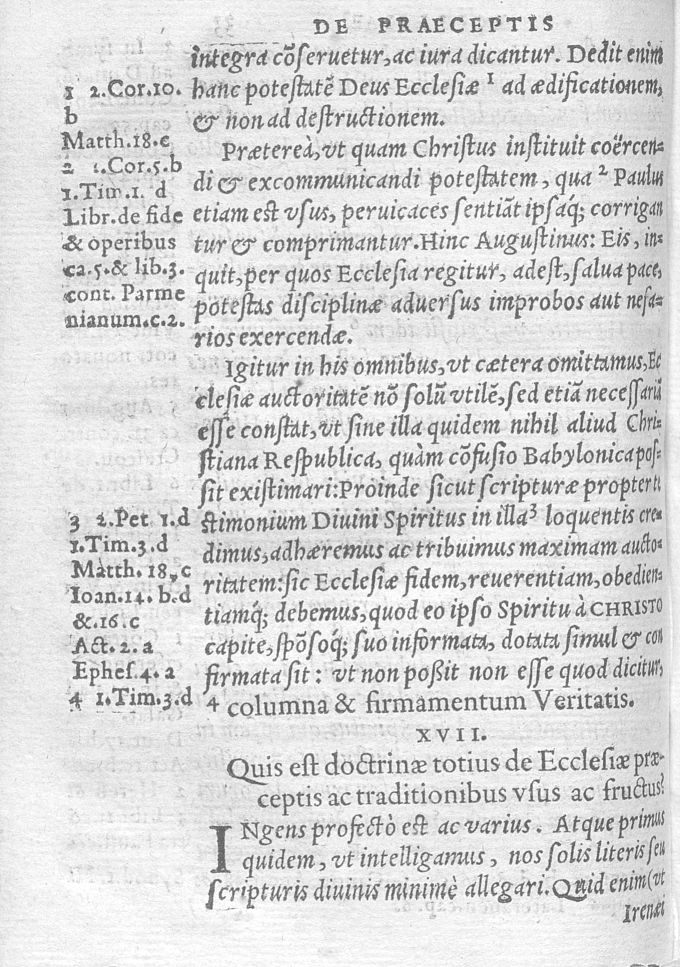 DE PRAECEPTIS
integra cōſeruetur, ac iura dicantur. Dedit enim
hanc poteſtatē Deus Eccleſiæ ¹ ad ædificationem,
& non ad deſtructionem.
Præterea, vt quam Chriſtus inſtituit coërcen-
di & excommunicandi poteſtatem, qua ² Paulus
etiam eſt vſus, peruicaces ſentiāt ipſaq́; corrigan
tur & comprimantur. Hinc Auguſtinus: Eis, in-
quit, per quos Eccleſia regitur, adeſt, ſalua pace,
poteſtas diſciplinæ aduerſus improbos aut nefa-
rios exercendæ.
Igitur in his omnibus, vt cætera omittamus, Ec
cleſiæ auctoritatē nō ſolū vtilē, ſed etiā neceſſariā
eſſe conſtat, vt ſine illa quidem nihil aliud Chri-
ſtiana Reſpublica, quàm cōfuſio Babylonica poſ-
ſit exiſtimari: Proinde ſicut ſcripturæ propter te
ſtimonium Diuini Spiritus in illa ³ loquentis cre-
dimus, adhæremus ac tribuimus maximam aucto-
ritatem: ſic Eccleſiæ fidem, reuerentiam, obedien-
tiamq́; debemus, quod eo ipſo Spiritu à CHRISTO
capite, ſpōſoq́; ſuo informata, dotata ſimul & con
firmata ſit: vt non poßit non eſſe quod dicitur,
4 columna & firmamentum Veritatis.
XVII.
Quis eſt doctrinæ totius de Eccleſiæ præ-
ceptis ac traditionibus vſus ac fructus?
INgens profectò eſt ac varius. Atque primus
quidem, vt intelligamus, nos ſolis literis ſeu
ſcripturis diuinis minimè allegari. Quid enim (vt
Irenæi
1 2.Cor.10.
b
Matth.18.c
2 1.Cor.5.b
1.Tim.1. d
Libr.de fide
& operibus
ca.5.& lib.3.
cont. Parme
nianum.c.2.
3 2.Pet 1.d
1.Tim.3.d
Matth. 18. c
Ioan.14. b.d
&.16.c
Act. 2. a
Epheſ.4. a
4 1.Tim.3.d